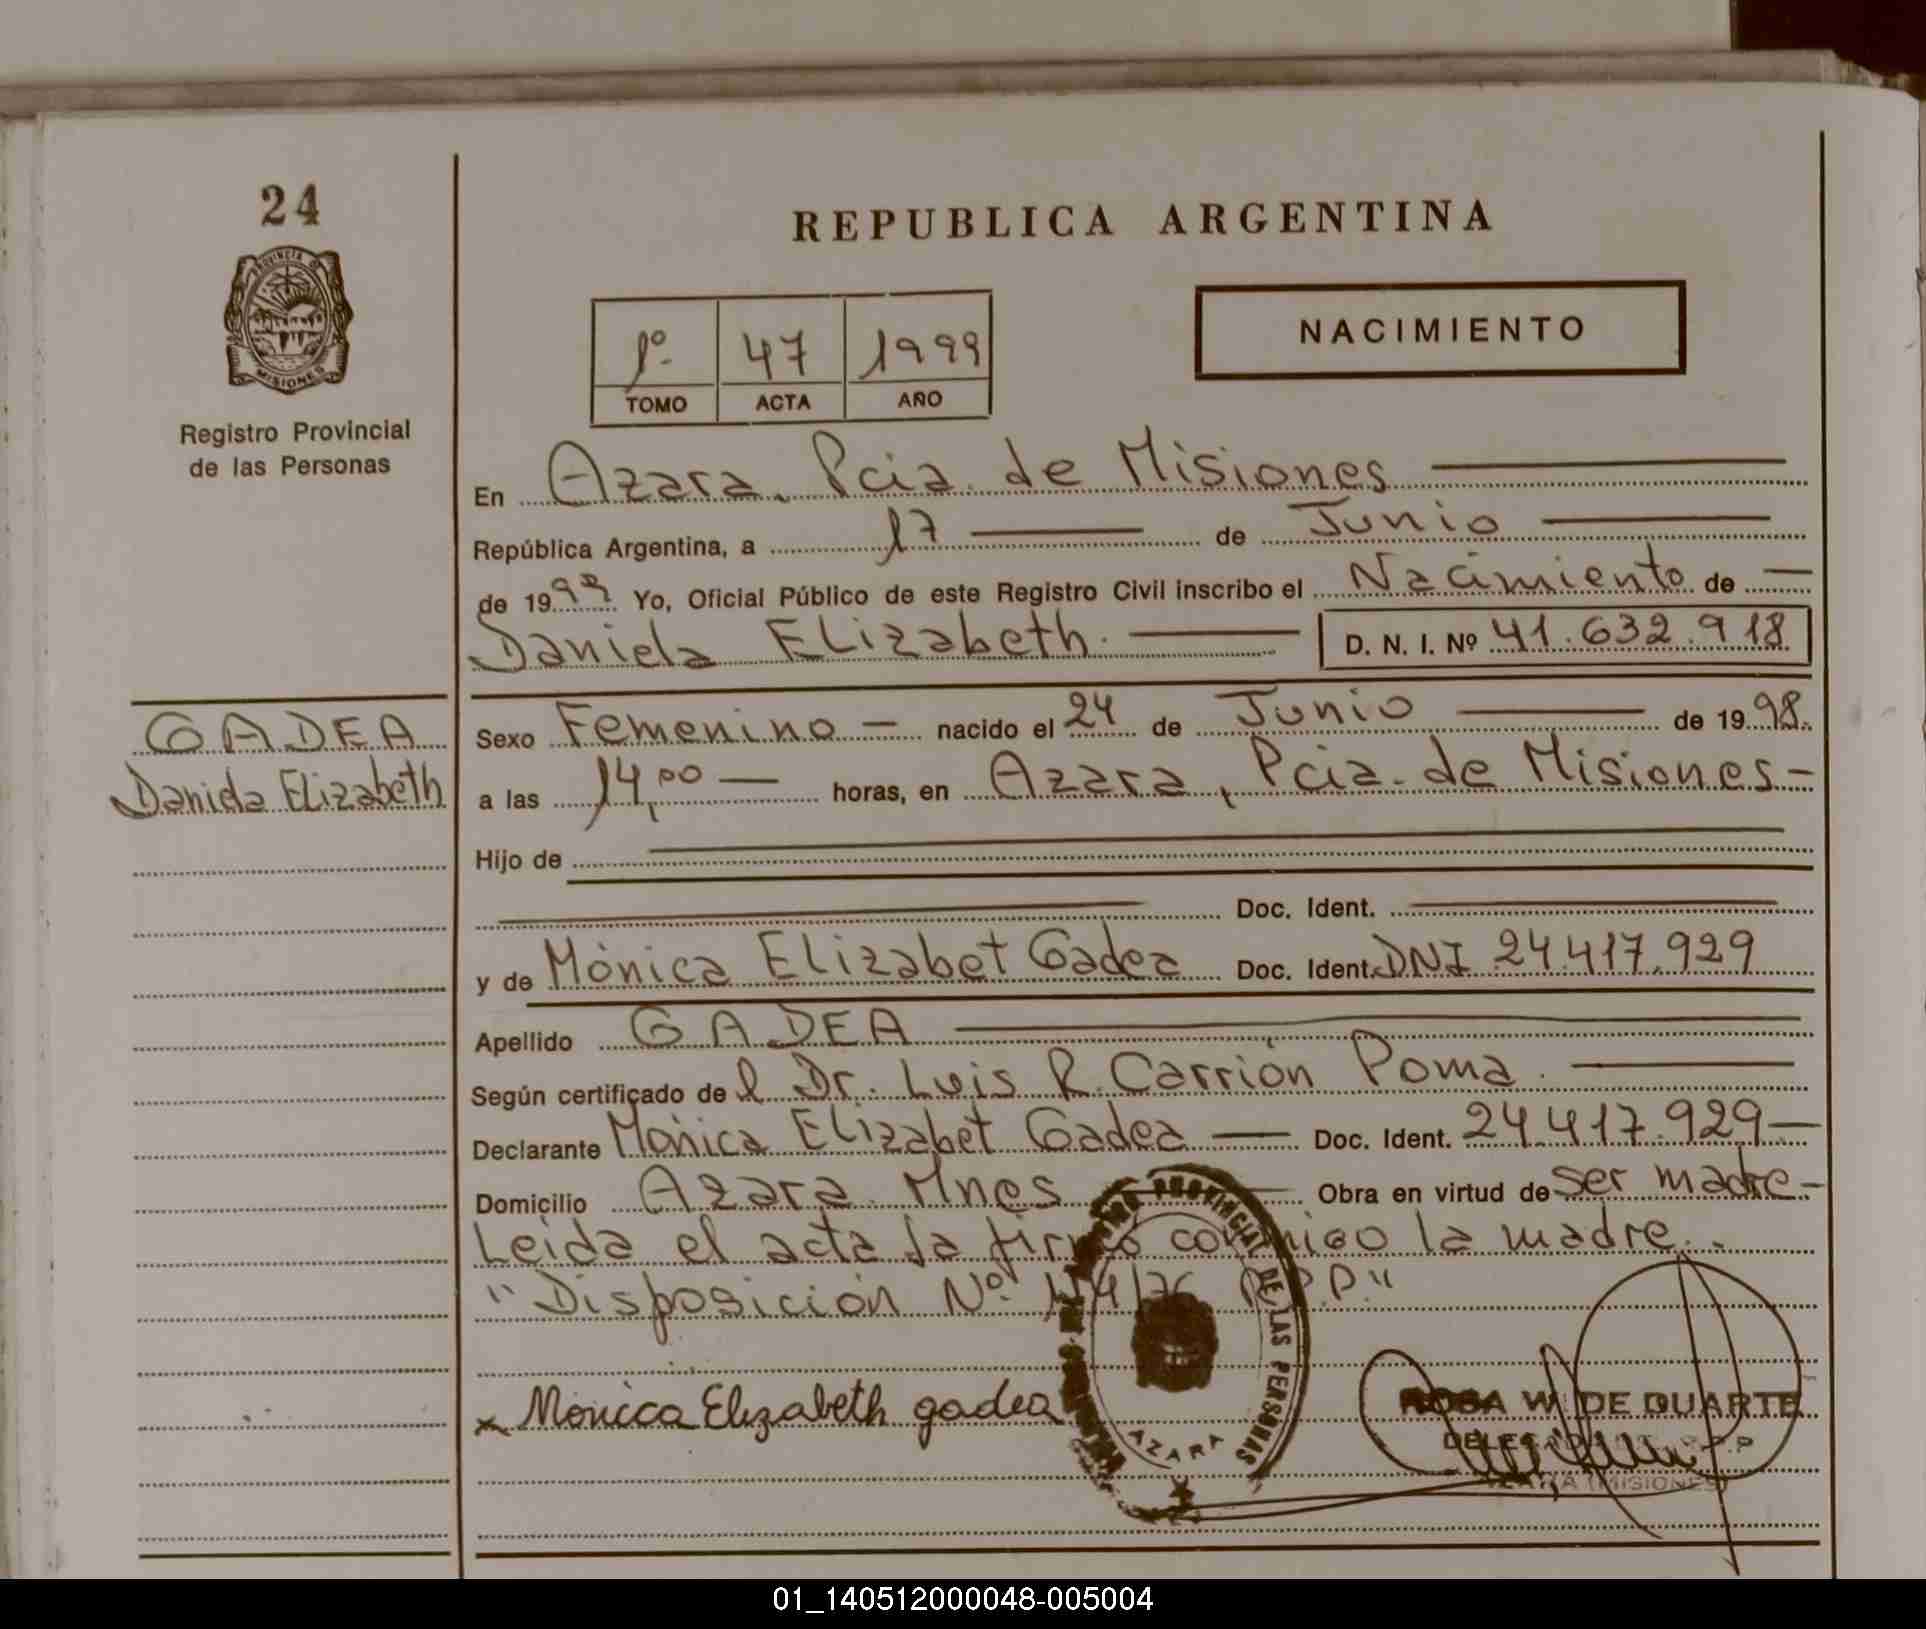 24
REPUBLICA ARGENTINA
PROVINCIA DE
MISIONES
Registro Provincial
de las Personas
1º 47 1999
TOMO ACTA AÑO
NACIMIENTO
En Azara, Pcia. de Misiones
República Argentina, a 17 de Junio
de 1999 Yo, Oficial Público de este Registro Civil inscribo el Nacimiento de
Daniela Elizabeth. D. N. I. Nº 41.632.918
GADEA
Daniela Elizabeth
Sexo Femenino - nacido el 24 de Junio de 1998.
a las 14,00 horas, en Azara, Pcia. de Misiones-
Hijo de
Doc. Ident.
y de Mónica Elizabet Gadea Doc. Ident. DNI 24.417.929
Apellido GADEA
Según certificado del Dr. Luis R. Carrión Poma.
Declarante Mónica Elizabet Gadea Doc. Ident. 24.417.929
Domicilio Azara. Mnes Obra en virtud de ser madre-
Leída el acta la firmó conmigo la madre.
"Disposición Nº R.P.P."
PROVINCIAL DE LAS PERSONAS
AZARA
x Monica Elizabeth gadea
ROSA W. DE DUARTE
(MISIONES)
01_140512000048-005004